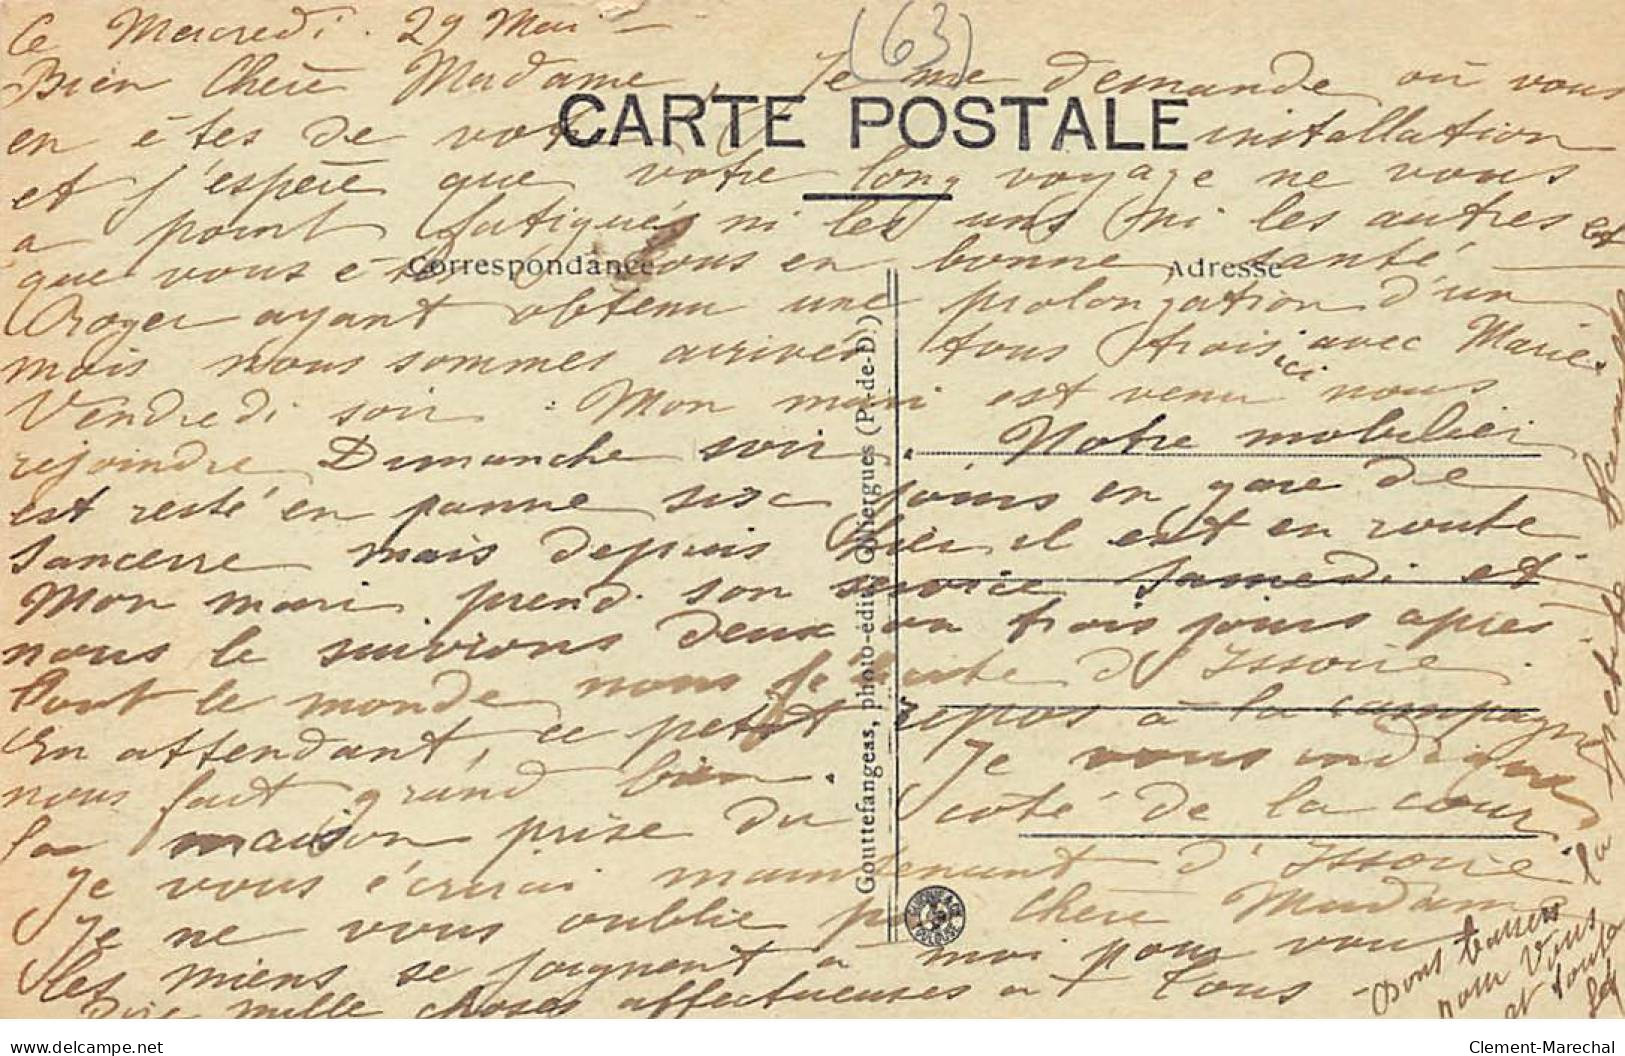 Ce Mercredi 29 Mai
(63)
Bien Chère Madame, Je me demande où vous
en êtes de votre installation
CARTE POSTALE
et j'espère que votre long voyage ne vous
a point fatigués ni les uns ni les autres et
que vous êtes tous en bonne santé
Correspondance
Adresse
Roger ayant obtenu une prolongation d'un
mois nous sommes arrivés tous trois avec Marie
Vendredi soir. Mon mari est venu ici nous
rejoindre Dimanche soir. Notre mobilier
est resté en panne six jours en gare de
Sancerre mais depuis hier il est en route
Mon mari prend son service Samedi et
nous le suivrons deux ou trois jours après
Tout le monde nous félicite d'Issoire.
En attendant, ce petit repos à la campagne
nous fait grand bien. Je vous indique
la maison prise du côté de la cour
Je vous écrirai maintenant d'Issoire
Je ne vous oublie pas chère Madame
les miens se joignent à moi pour vous
dire mille choses affectueuses à tous
Bons baisers
pour vous
et toute
la petite famille
Gouttefangeas, photo-édit. Olliergues (P.-de-D.)
LABOUCHE
TOULOUSE
https://www.delcampe.net
Clement-Marechal